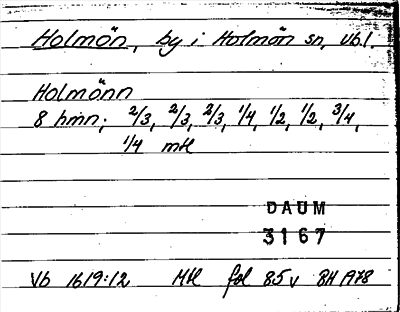 Holmön, by i Holmön sn, Vbl.
Holmönn
8 hmn; 2/3, 2/3, 2/3, 1/4, 1/2, 1/2, 3/4,
1/4 mtl
DAUM
3167
Vb 1619:12 Mtl fol 85v BH A78